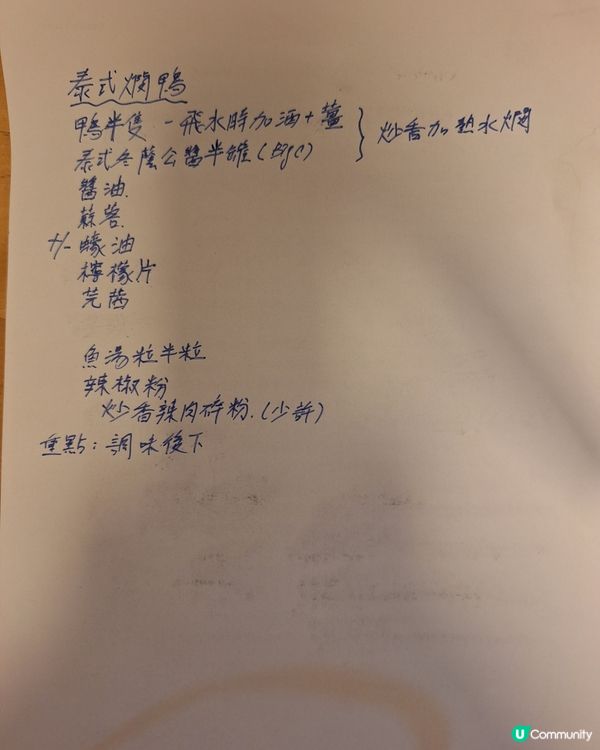 泰式燜鴨
鴨半隻 - 飛水時加酒+薑 } 炒香加熱水燜
泰式冬蔭公醬半罐
醬油.
蒜蓉.
+/- 蠔油
檸檬片
芫茜
魚湯粒半粒
辣椒粉
炒香辣肉碎粉.(少許)
重點:調味後下
U Community